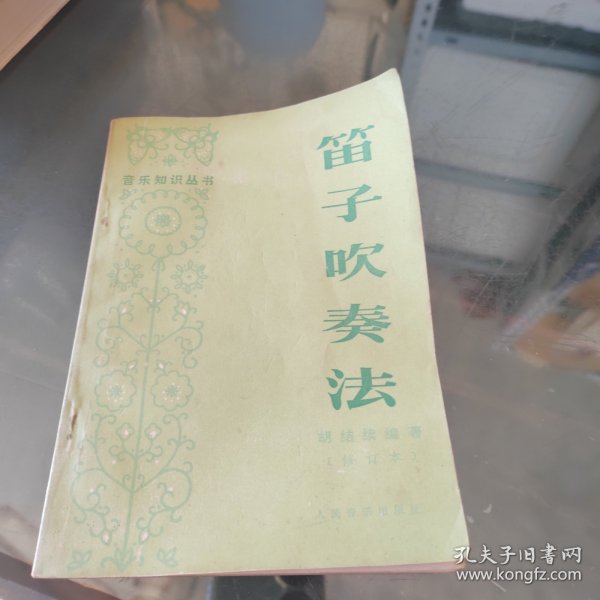 音乐知识丛书
笛子吹奏法
胡结续编著
(修订本)
人民音乐出版社
孔夫子旧书网
www.kongfz.com